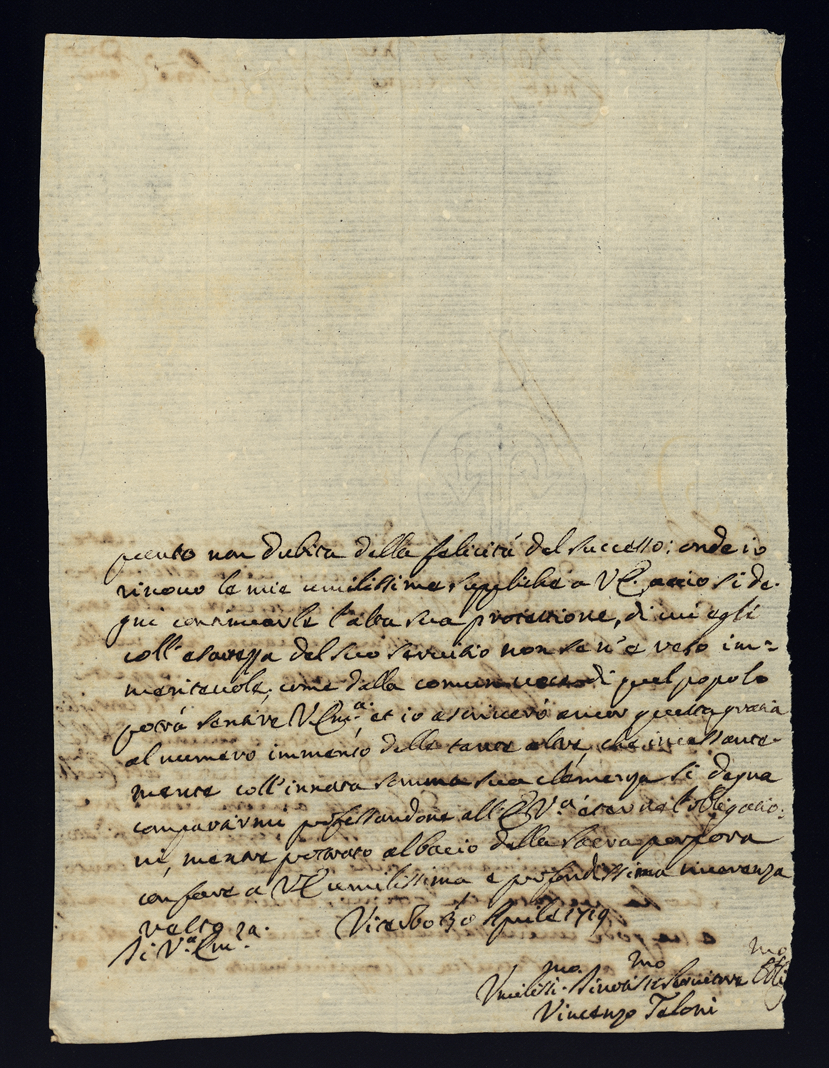 quento non dubita della felicità del successo; onde io
rinovo le mie umilissime suppliche a V.E. acciò si de-
gni continuarle l'alta sua protettione, di cui egli
coll'esatezza del suo servitio non se n'è reso im=
meritevole, come dalla comun di quel popolo
potrà sentire V. Em.ª et io ascriverò ancor questa gratia
al numero immenso delle tante altre, che incessante-
mente coll'innata somma sua clemenza si degna
compartirmi professandone all'E. V.ª eterne l'obligatio=
ni, mentre prostrato al bacio della Sacra porpora
con fare a V.E. umilissima e profondissima riverenza
resto
Viterbo 30 Aprile 1719
Di V.ª Em.ª
Umiliss.mo Divotiss.mo Servitore Obl.mo
Vincenzo Taloni